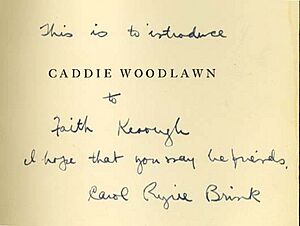 This is to introduce
CADDIE WOODLAWN
to
Faith Keough
I hope that you may be friends.
Carol Ryrie Brink